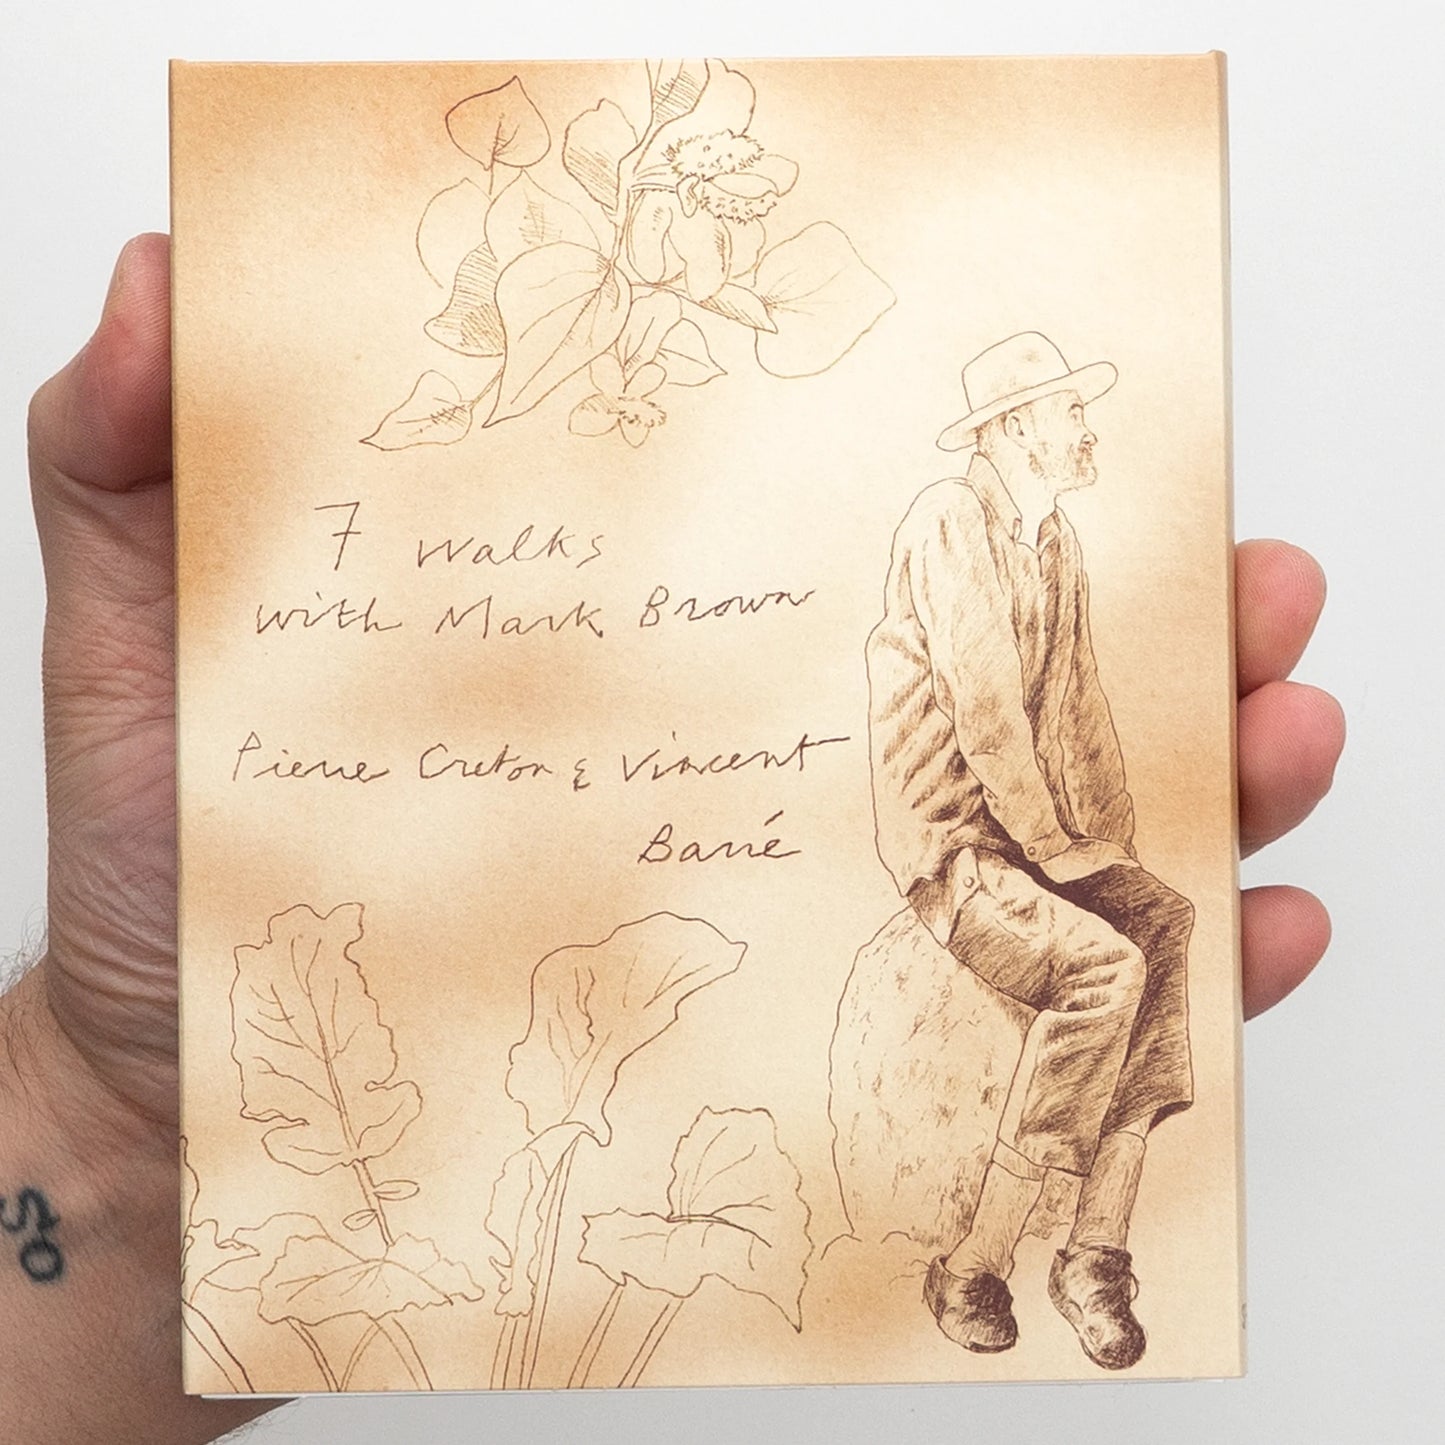 7 Walks
with Mark Brown
Pierre Creton & Vincent
Barré
So